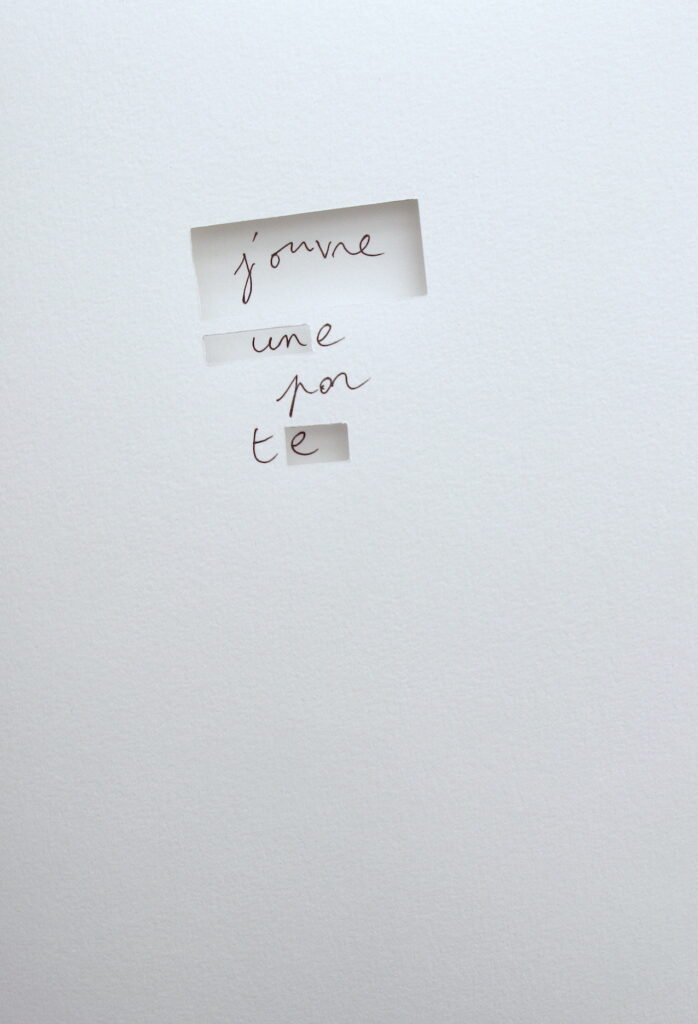 j'ouvre
une
por
te